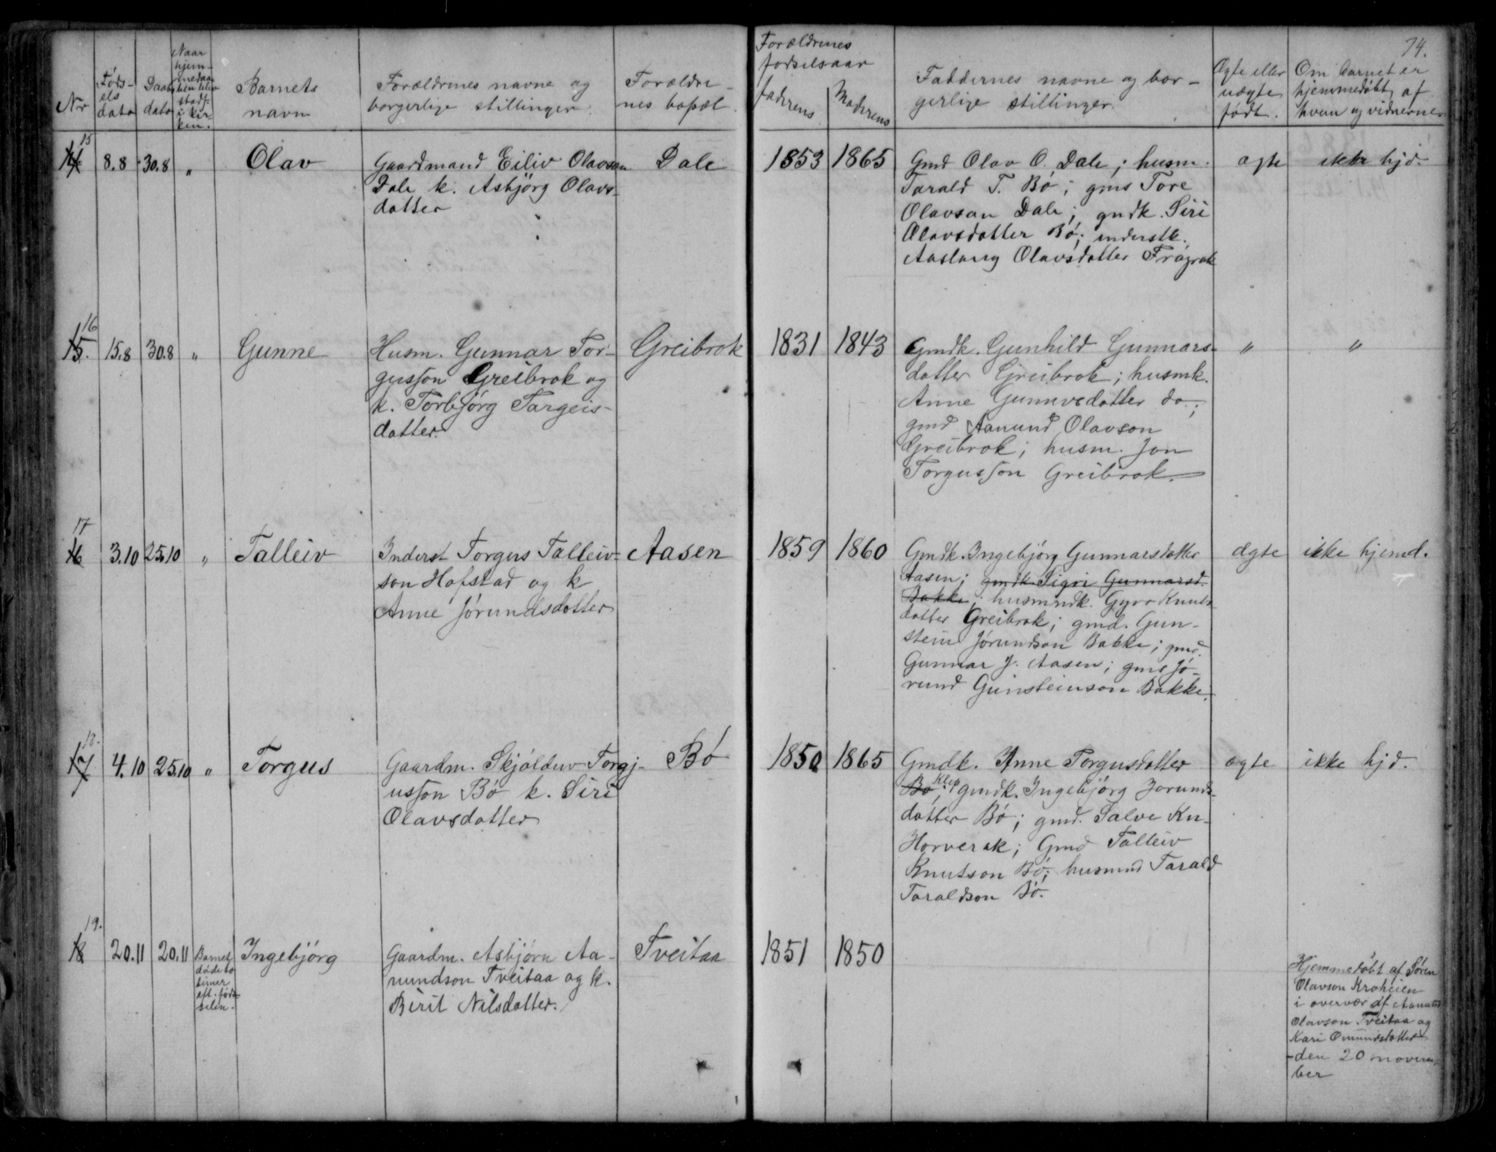 74.
Nr
Føds-
els
dato
Daabs
dato
Naar
hjem-
kir
ken.
Barnets
navn
Forældrenes navne og
borgerlige stillinger
Forældre-
nes bopæl.
Forældrenes
fødselsaar
faderens
Moderens
Faddernes navne og bor-
gerlige stillinger
Ægte eller
uægte
født.
Om barnet er
hjemmedøbt, af
hvem og vidnerne
15
14
8.8
30.8
"
Olav
Gaardmand Eiliv Olavson
Dale k. Asbjörg Olavs-
datter
Dale
1853
1865
Gmd Olav O. Dale; husm.
Tarald T. Bö; gms Tore
Olavson Dale; gmdk. Siri
Olavsdatter Bö; inderstk.
Aaslaug Olavsdatter
ægte
ikke hjd.
16
15.
15.8
30.8
"
Gunne
Husm. Gunnar Tor-
gusson Greibrok og
k. Torbjörg Targeis-
datter.
Greibrok
1831
1843
Gmdk. Gunhild Gunnars-
datter Greibrok; husmk.
Anne Gunnvsdatter do.;
gmd Aanund Olavson
Greibrok; husm. Jon
Torgusson Greibrok.
"
"
17
16
3.10
25.10
"
Talleiv
Inderst Torgus Talleiv-
son Hafstad og k
Anne Jörundsdatter
Aasen
1859
1860
Gmdk. Ingebjörg Gunnarsdatter
Aasen; gmdk Sigri Gunnarsd.
Bakke; husmndk. Gyro Knuts
datter Greibrok; gmd. Gun-
stein Jörundson Bakke; gmd.
Gunnar J. Aasen; gms Jö-
rund Gunsteinson Bakke.
ægte
ikke hjemd.
18.
17
4.10
25.10
"
Torgus
Gaardm. Skjöldulv Torgj-
usson Bö k. Siri
Olavsdatter
Bö
1850
1865
Gmdk. Anne Torgusdatter
Bö; Klep gmdk. Ingebjörg Jorunds-
datter Bö; gmd. Salve Kn.
Horverak; Gmd Talleiv
Knutson Bö; husmnd Tarald
Taraldson Bö.
ægte
ikke hjd.
19.
18
20.11
20.11
Barnet
döde to
timer
eft. föd-
selen.
Ingebjörg
Gaardm. Asbjörn Aa-
nundson Tveitaa og k.
Berit Nilsdatter.
Tveitaa
1851
1850
Hjemmedöbt af Sören
Olavson Kroheien
i overvær af Aanund
Olavson Tveitaa og
Kari Omundsdatter
den 20 novem-
ber